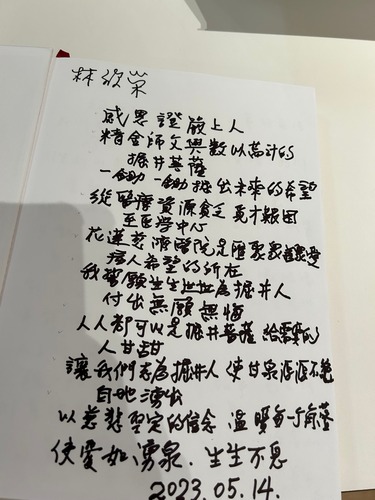 林欣榮
感恩證嚴上人
精舍師父與數以萬計的
掘井菩薩
一鋤一鋤掘出未來的希望
從醫療資源貧乏 人才艱困
至醫學中心
花蓮慈濟醫院是匯聚
病人希望的所在
我誓願生生世世為掘井人
付出無願無悔
人人都可以是掘井菩薩 給需要的
人甘甜
讓我們成為掘井人 使甘泉源源不絕
自地湧出
以慈悲堅定的信念 溫暖每一個角落
使愛如湧泉．生生不息
2023.05.14.